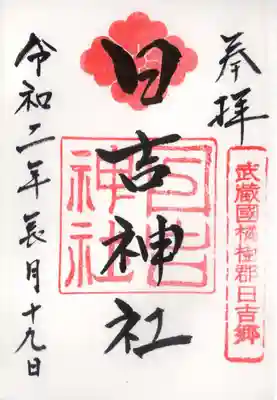 奉拝
武蔵國橘樹郡日吉郷
日吉神社
日吉
神社
令和二年長月十九日